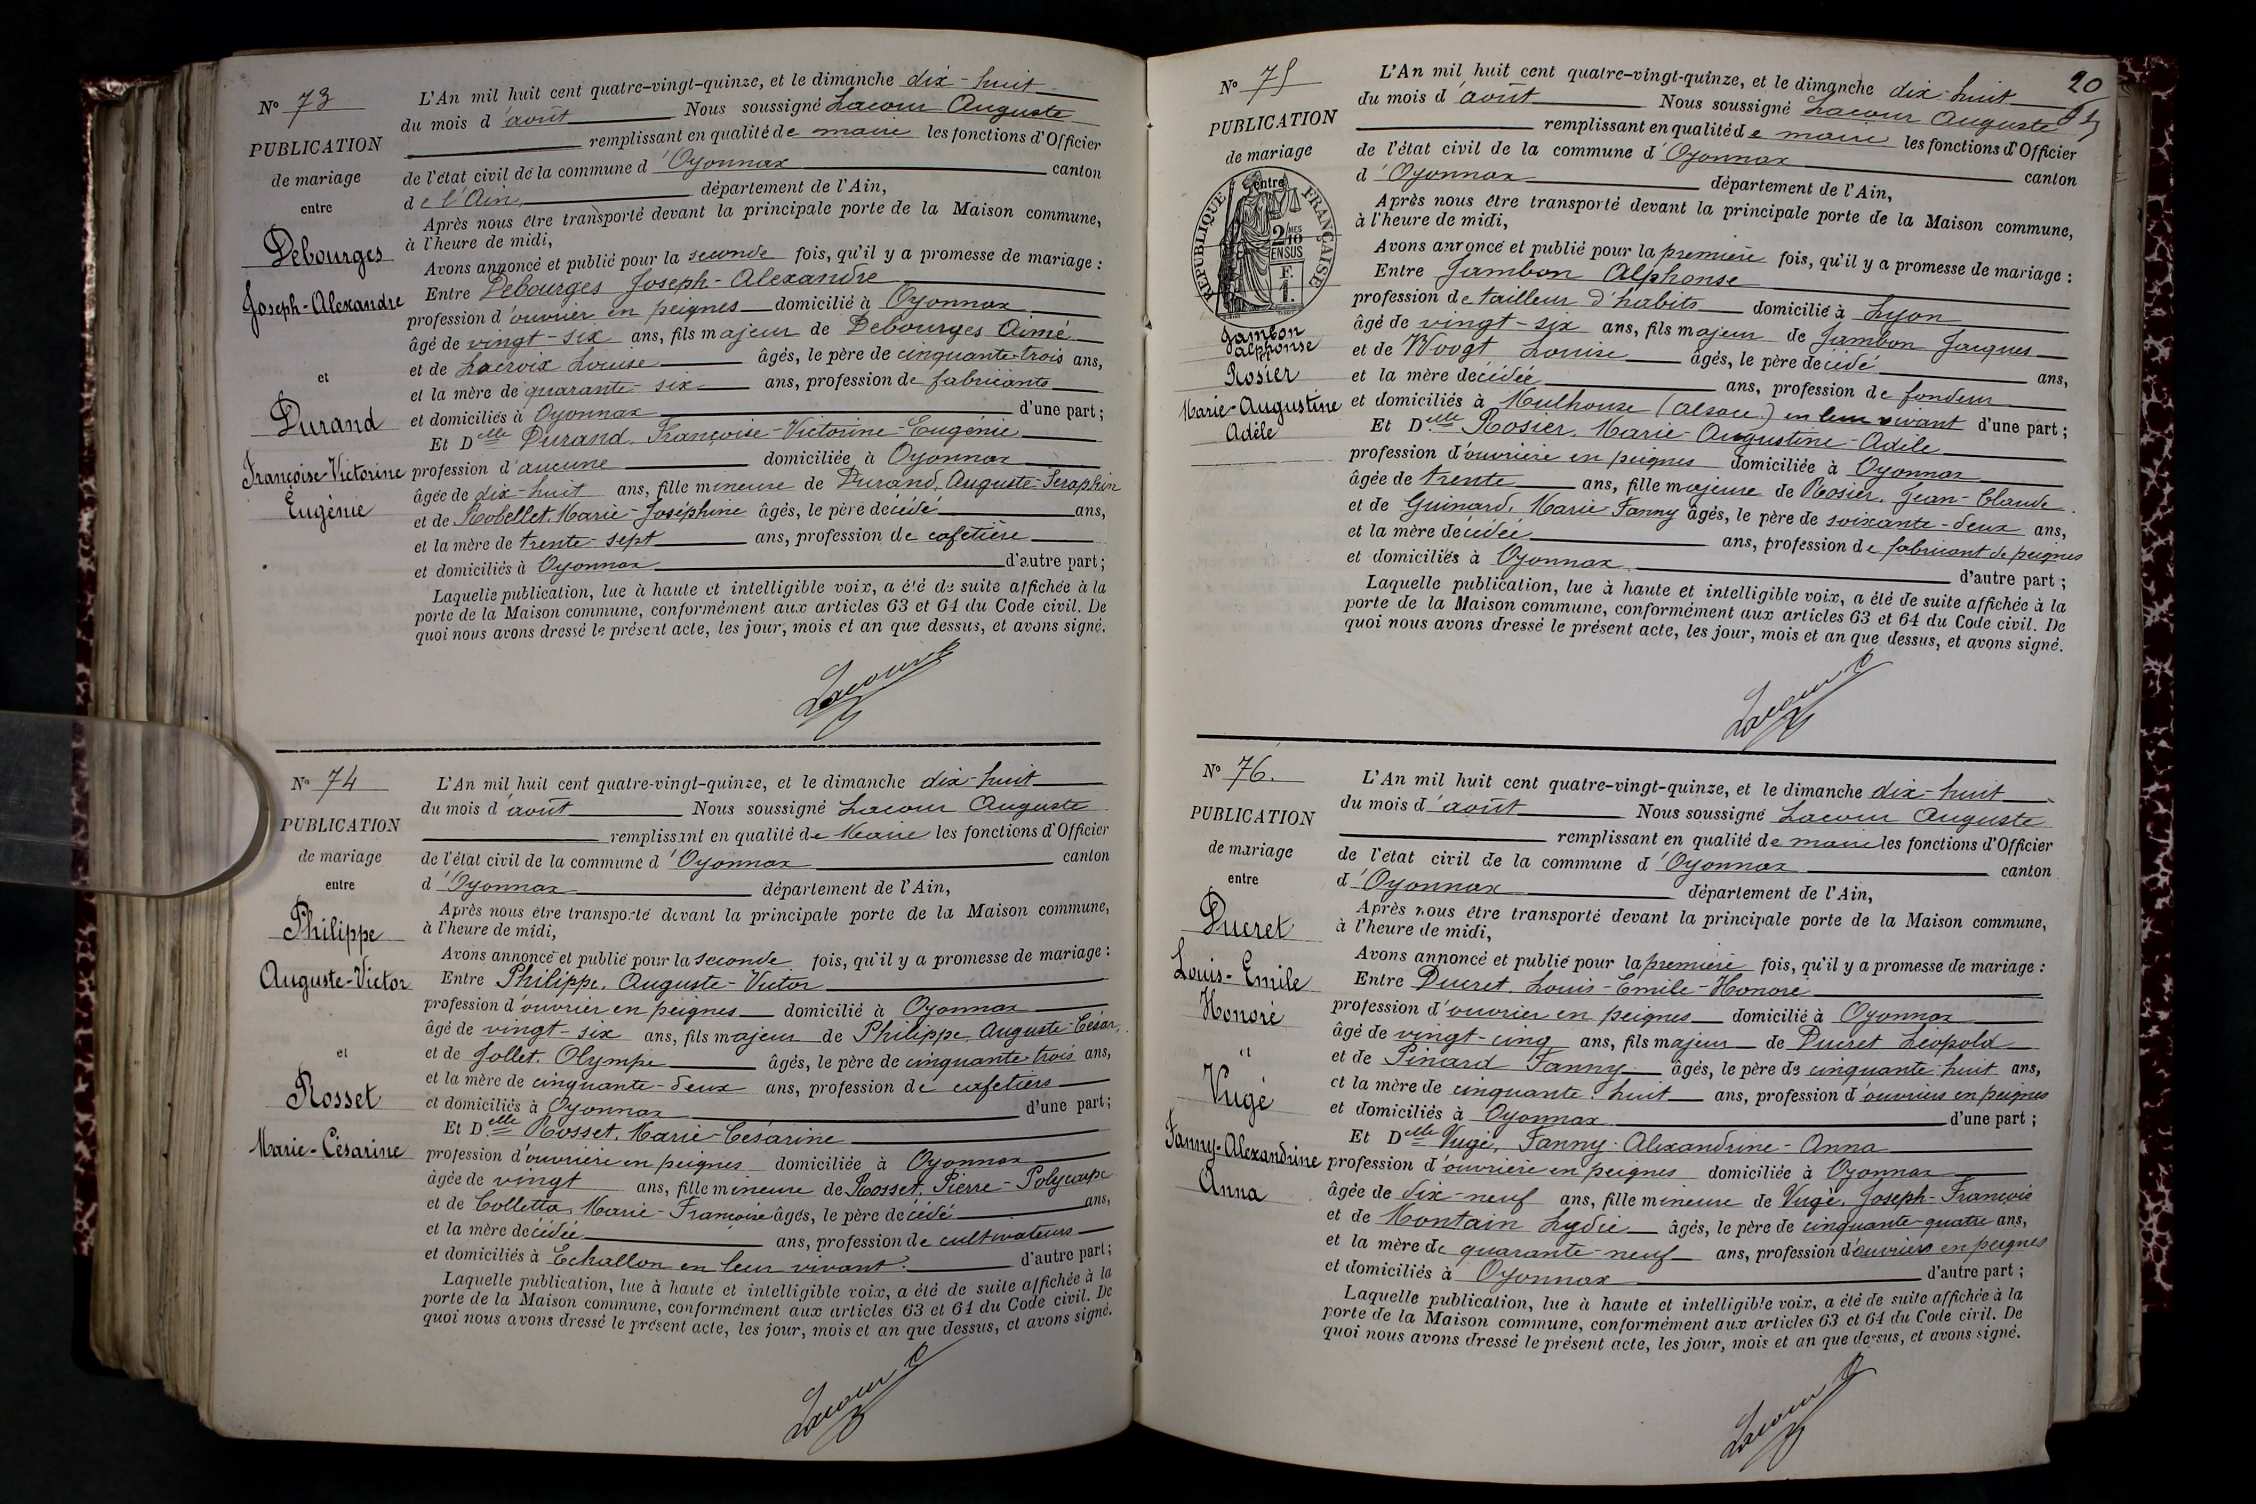 N° 73
PUBLICATION
de mariage
entre
Debourges
Joseph-Alexandre
et
Durand
Françoise Victorine
Eugénie
L'An mil huit cent quatre-vingt-quinze, et le dimanche dix-huit
du mois d'août Nous soussigné Lacour Auguste
remplissant en qualité de maire les fonctions d'Officier
de l'état civil de la commune d'Oyonnax canton
de l'Ain, département de l'Ain,
Après nous être transporté devant la principale porte de la Maison commune,
à l'heure de midi,
Avons annoncé et publié pour la seconde fois, qu'il y a promesse de mariage :
Entre Debourges Joseph-Alexandre
profession d'ouvrier en peignes domicilié à Oyonnax
âgé de vingt-six ans, fils majeur de Debourges Aimé
et de Lacroix Louise âgés, le père de cinquante-trois ans,
et la mère de quarante-six ans, profession de fabricants
et domiciliés à Oyonnax d'une part ;
Et Delle Durand, Françoise-Victorine-Eugénie
profession d'aucune domiciliée à Oyonnax
âgée de dix-huit ans, fille mineure de Durand, Auguste-Séraphin
et de Robellet, Marie-Joséphine âgés, le père décédé ans,
et la mère de trente-sept ans, profession de cafetière
et domiciliés à Oyonnax d'autre part ;
Laquelle publication, lue à haute et intelligible voix, a été de suite affichée à la
porte de la Maison commune, conformément aux articles 63 et 64 du Code civil. De
quoi nous avons dressé le présent acte, les jour, mois et an que dessus, et avons signé.
Lacour
N° 74
PUBLICATION
de mariage
entre
Philippe
Auguste-Victor
et
Rosset
Marie-Césarine
L'An mil huit cent quatre-vingt-quinze, et le dimanche dix-huit
du mois d'août Nous soussigné Lacour Auguste
remplissant en qualité de Maire les fonctions d'Officier
de l'état civil de la commune d'Oyonnax canton
d'Oyonnax département de l'Ain,
Après nous être transporté devant la principale porte de la Maison commune,
à l'heure de midi,
Avons annoncé et publié pour la seconde fois, qu'il y a promesse de mariage :
Entre Philippe, Auguste-Victor
profession d'ouvrier en peignes domicilié à Oyonnax
âgé de vingt-six ans, fils majeur de Philippe, Auguste-César,
et de Jollet, Olympe âgés, le père de cinquante-trois ans,
et la mère de cinquante-deux ans, profession de cafetiers
et domiciliés à Oyonnax d'une part ;
Et Delle Rosset, Marie-Césarine
profession d'ouvrière en peignes domiciliée à Oyonnax
âgée de vingt ans, fille mineure de Rosset, Pierre-Polycarpe
et de Colletta, Marie-Françoise âgés, le père décédé ans,
et la mère décédée ans, profession de cultivateurs
et domiciliés à Echallon en leur vivant. d'autre part ;
Laquelle publication, lue à haute et intelligible voix, a été de suite affichée à la
porte de la Maison commune, conformément aux articles 63 et 64 du Code civil. De
quoi nous avons dressé le présent acte, les jour, mois et an que dessus, et avons signé.
Lacour
20
N° 75
PUBLICATION
de mariage
entre
RÉPUBLIQUE FRANÇAISE
2/10MES
EN SUS
F.
1.
Jambon
Alphonse
Rosier
Marie-Augustine
Adèle
L'An mil huit cent quatre-vingt-quinze, et le dimanche dix-huit
du mois d'août Nous soussigné Lacour Auguste
remplissant en qualité de maire les fonctions d'Officier
de l'état civil de la commune d'Oyonnax canton
d'Oyonnax département de l'Ain,
Après nous être transporté devant la principale porte de la Maison commune,
à l'heure de midi,
Avons annoncé et publié pour la première fois, qu'il y a promesse de mariage :
Entre Jambon Alphonse
profession de tailleur d'habits domicilié à Lyon
âgé de vingt-six ans, fils majeur de Jambon Jacques
et de Woogt Louise âgés, le père décédé ans,
et la mère décédée ans, profession de fondeur
et domiciliés à Mulhouse (Alsace) en leur vivant d'une part ;
Et Delle Rosier, Marie-Augustine-Adèle
profession d'ouvrière en peignes domiciliée à Oyonnax
âgée de trente ans, fille majeure de Rosier, Jean-Claude
et de Guinard, Marie Fanny âgés, le père de soixante-deux ans,
et la mère décédée ans, profession de fabricant de peignes
et domiciliés à Oyonnax d'autre part ;
Laquelle publication, lue à haute et intelligible voix, a été de suite affichée à la
porte de la Maison commune, conformément aux articles 63 et 64 du Code civil. De
quoi nous avons dressé le présent acte, les jour, mois et an que dessus, et avons signé.
Lacour
N° 76.
PUBLICATION
de mariage
entre
Ducret
Louis-Emile
Honoré
et
Vugé
Fanny-Alexandrine
Anna
L'An mil huit cent quatre-vingt-quinze, et le dimanche dix-huit
du mois d'août Nous soussigné Lacour Auguste
remplissant en qualité de maire les fonctions d'Officier
de l'état civil de la commune d'Oyonnax canton
d'Oyonnax département de l'Ain,
Après nous être transporté devant la principale porte de la Maison commune,
à l'heure de midi,
Avons annoncé et publié pour la première fois, qu'il y a promesse de mariage :
Entre Ducret, Louis-Emile-Honoré
profession d'ouvrier en peignes domicilié à Oyonnax
âgé de vingt-cinq ans, fils majeur de Ducret Léopold
et de Pinard Fanny âgés, le père de cinquante-huit ans,
et la mère de cinquante-huit ans, profession d'ouvriers en peignes
et domiciliés à Oyonnax d'une part ;
Et Delle Vugé, Fanny-Alexandrine-Anna
profession d'ouvrière en peignes domiciliée à Oyonnax
âgée de dix-neuf ans, fille mineure de Vugé, Joseph-François
et de Montain Lydie âgés, le père de cinquante-quatre ans,
et la mère de quarante-neuf ans, profession d'ouvriers en peignes
et domiciliés à Oyonnax d'autre part ;
Laquelle publication, lue à haute et intelligible voix, a été de suite affichée à la
porte de la Maison commune, conformément aux articles 63 et 64 du Code civil. De
quoi nous avons dressé le présent acte, les jour, mois et an que dessus, et avons signé.
Lacour